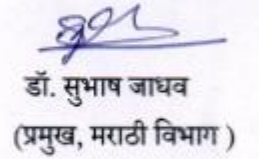 डॉ. सुभाष जाधव
(प्रमुख, मराठी विभाग )